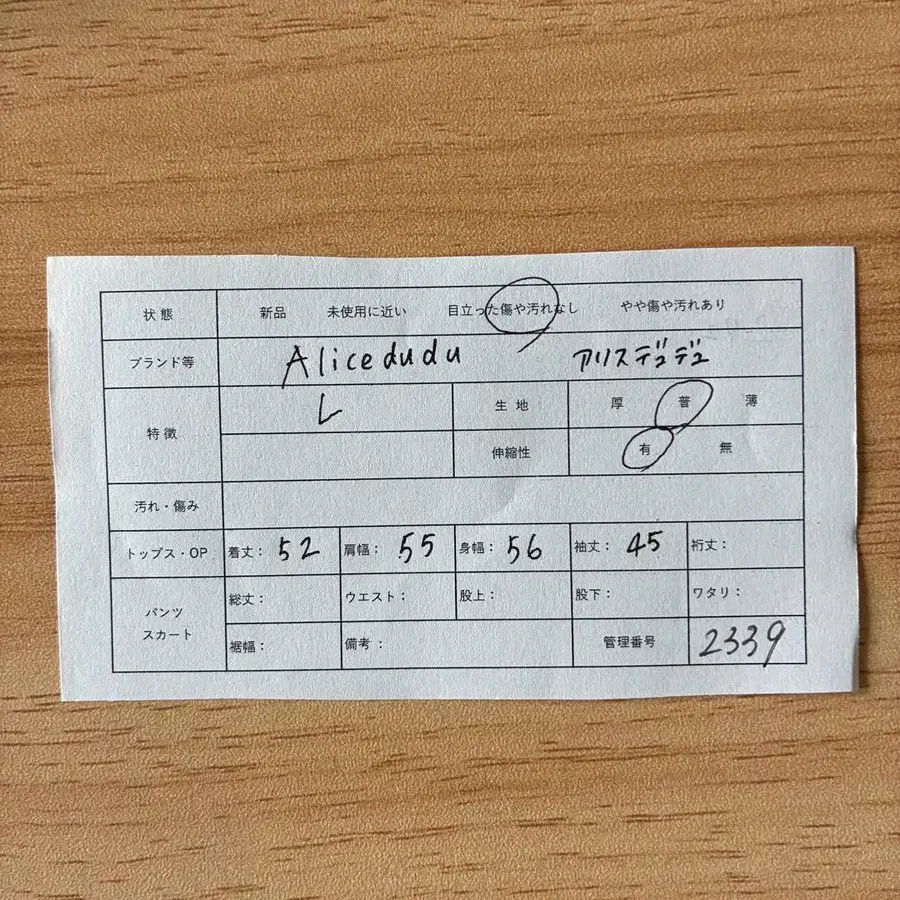 状態 新品 未使用に近い 目立った傷や汚れなし やや傷や汚れあり
ブランド等 Alicedudu アリスデュデュ
特徴 L 生地 厚 普 薄
伸縮性 有 無
汚れ・傷み
トップス・OP 着丈：52 肩幅：55 身幅：56 袖丈：45 裄丈：
パンツ スカート 総丈： ウエスト： 股上： 股下： ワタリ：
裾幅： 備考： 管理番号 2339